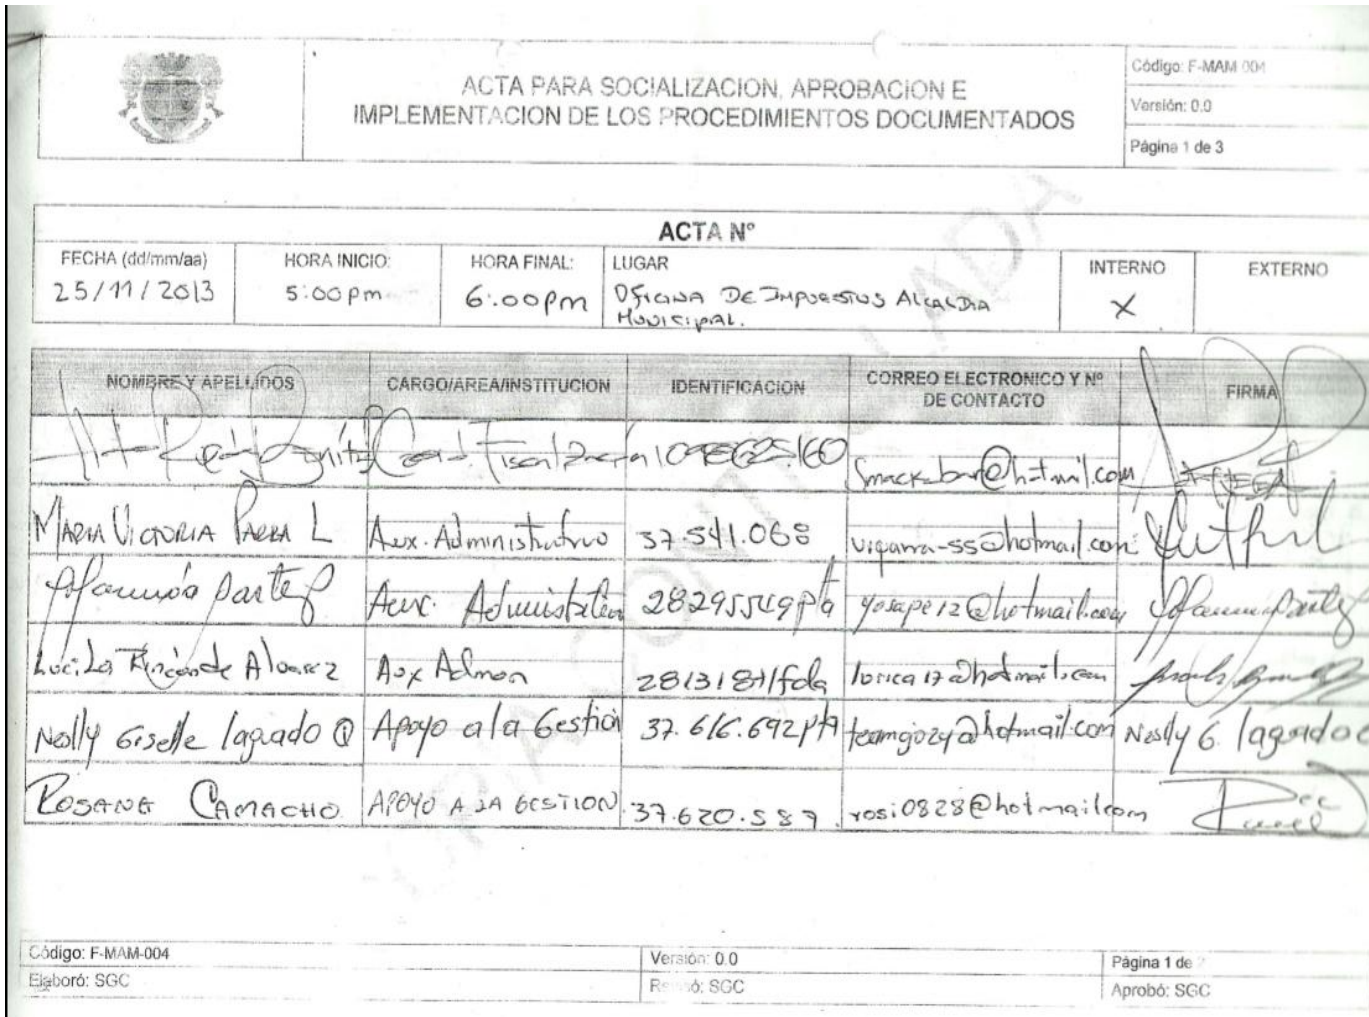 ACTA PARA SOCIALIZACION, APROBACION E
IMPLEMENTACION DE LOS PROCEDIMIENTOS DOCUMENTADOS
Código: F-MAM 004
Versión: 0.0
Página 1 de 3
ACTA N°
FECHA (dd/mm/aa) HORA INICIO: HORA FINAL: LUGAR INTERNO EXTERNO
25/11/2013 5:00pm 6:00pm Oficina De Impuestos Alcaldia
Municipal. X
NOMBRE Y APELLIDOS CARGO/AREA/INSTITUCION IDENTIFICACION CORREO ELECTRONICO Y Nº
DE CONTACTO FIRMA
@hotmail.com
MARIA VICTORIA PARRA L Aux. Administrativo 37.541.068 viparra-55@hotmail.com
Aux. yosape12@hotmail.com
Rincón de Alvarez Aux Admon lorica17@hotmail.com
Nelly Giselle laguado Q Apoyo a la Gestión 37.616.692 pta @hotmail.com Nelly G. laguado
ROSANA CAMACHO APOYO A LA GESTION 37.620.587 rosi0828@hotmail.com
COPIA CONTROLADA
Código: F-MAM-004 Versión: 0.0 Página 1 de
Elaboró: SGC Revisó: SGC Aprobó: SGC